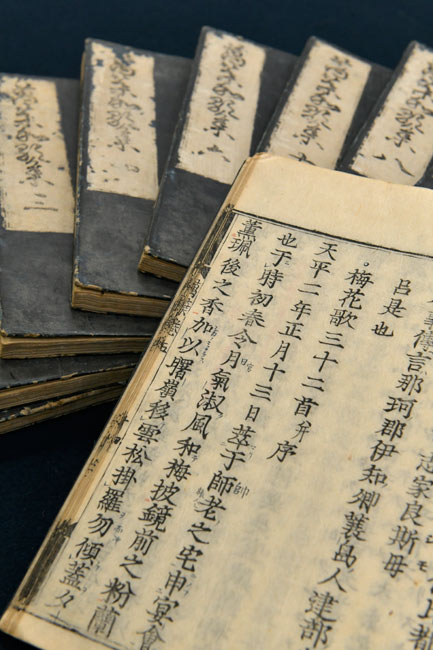 萬葉和歌集 二
萬葉和歌集 四
萬葉和歌集 六
萬葉和歌集
萬葉和歌集 八
志家良斯母
事傳言那珂郡伊知郷蓑島人建部
呂是也
梅花歌三十二首并序
天平二年正月十三日萃于師老之宅申宴會
帥
也于時初春令月氣淑風和梅披鏡前之粉蘭
薫珮後之香加以曙嶺移雲松掛羅勿傾蓋夕